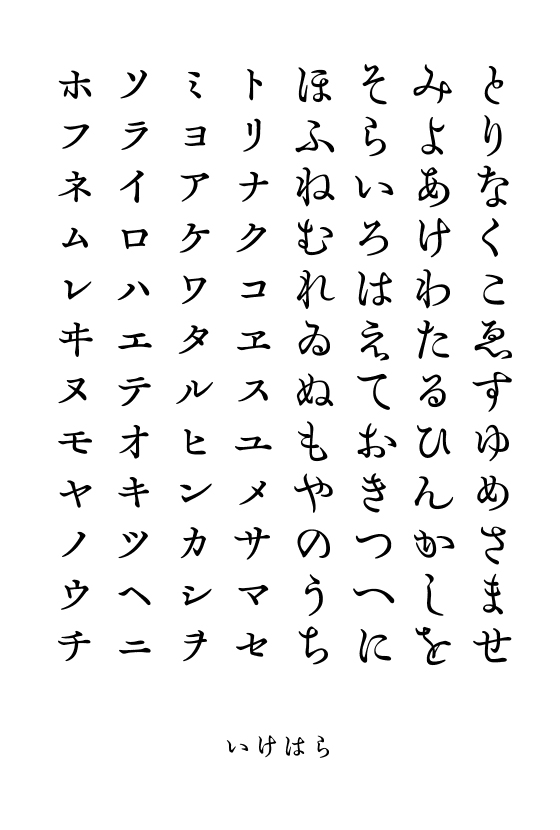 とりなくこゑすゆめさませ
みよあけわたるひんかしを
そらいろはえておきつへに
ほふねむれゐぬもやのうち
トリナクコヱスユメサマセ
ミヨアケワタルヒンカシヲ
ソライロハエテオキツヘニ
ホフネムレヰヌモヤノウチ
いけはら